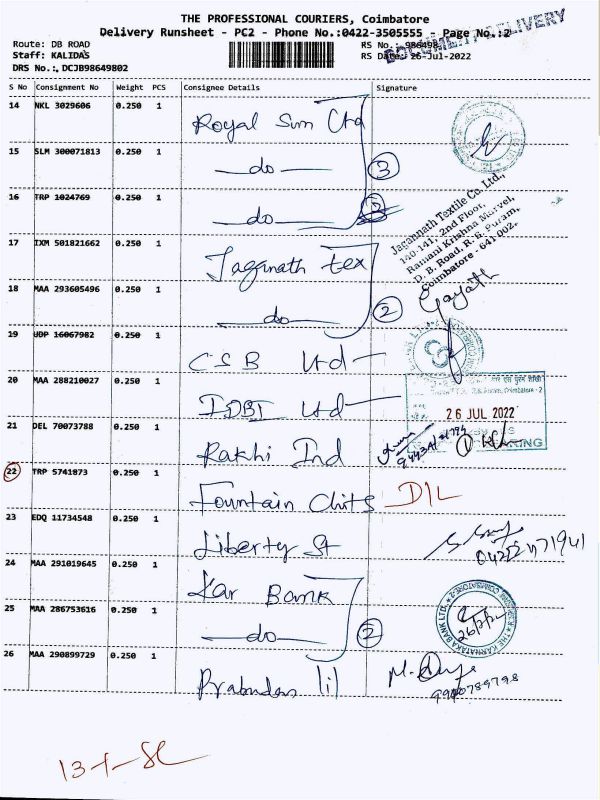 THE PROFESSIONAL COURIERS, Coimbatore
Delivery Runsheet - PC2 - Phone No.:0422-3505555 - Page No.:2
DOCUMENT DELIVERY
Route: DB ROAD
RS No.: 986498
Staff: KALIDAS
RS Date: 26-Jul-2022
DRS No.: DCJB98649802
S No Consignment No Weight PCS Consignee Details Signature
14 NKL 3029606 0.250 1 Royal Sun Ltd
15 SLM 300071813 0.250 1 —do— 3
16 TRP 1024769 0.250 1 —do—
Jagannath Textile Co. Ltd.,
140-141, 2nd Floor,
Ramani Krishna Marvel,
D. B. Road, R. S. Puram,
Coimbatore - 641 002.
17 IXM 501821662 0.250 1 Jagannath tex
18 MAA 293605496 0.250 1 —do— 2
19 UDP 16067982 0.250 1 CSB Ltd
20 MAA 288210027 0.250 1 IDBI Ltd
26 JUL 2022
21 DEL 70073788 0.250 1 Rakhi Ind
22 TRP 5741873 0.250 1 Fountain Chits D/L
23 EDQ 11734548 0.250 1 Liberty St
24 MAA 291019645 0.250 1 Kar Bank
25 MAA 286753616 0.250 1 —do— 2
THE KARNATAKA BANK LTD.
26 MAA 290899729 0.250 1